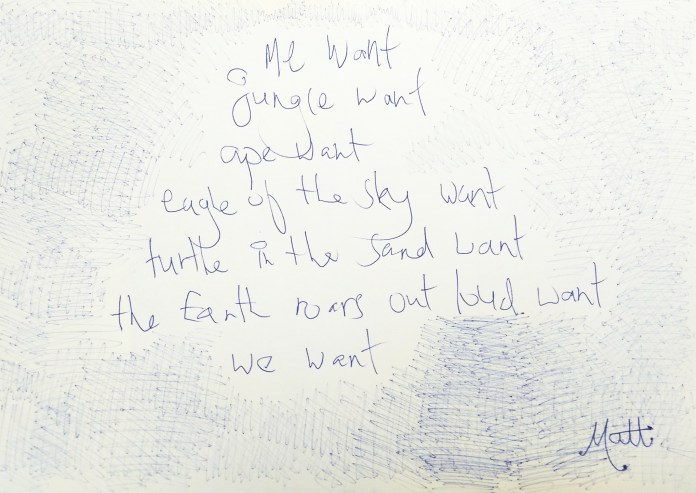 Me want
jungle want
ape want
eagle of the sky want
turtle in the sand want
the Earth roars out loud want
we want
Matt